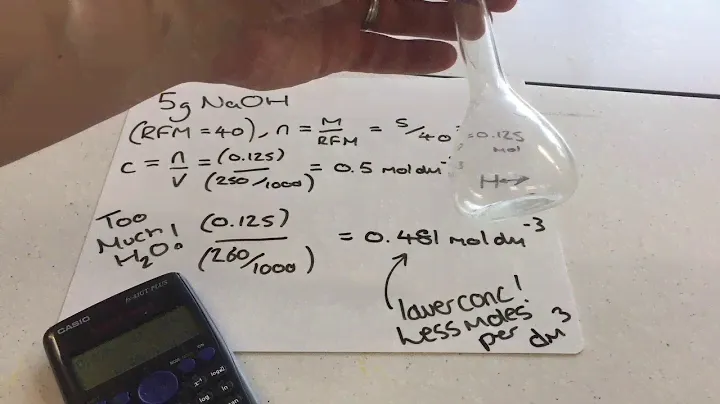 5g NaOH
(RFM = 40), n = M/RFM = 5/40 = 0.125 mol
c = n/v = (0.125)/(250/1000) = 0.5 moldm⁻³
Too Much! H₂O! (0.125)/(260/1000) = 0.481 moldm⁻³
lower conc!
Less moles per dm³
CASIO
fx-83GT PLUS